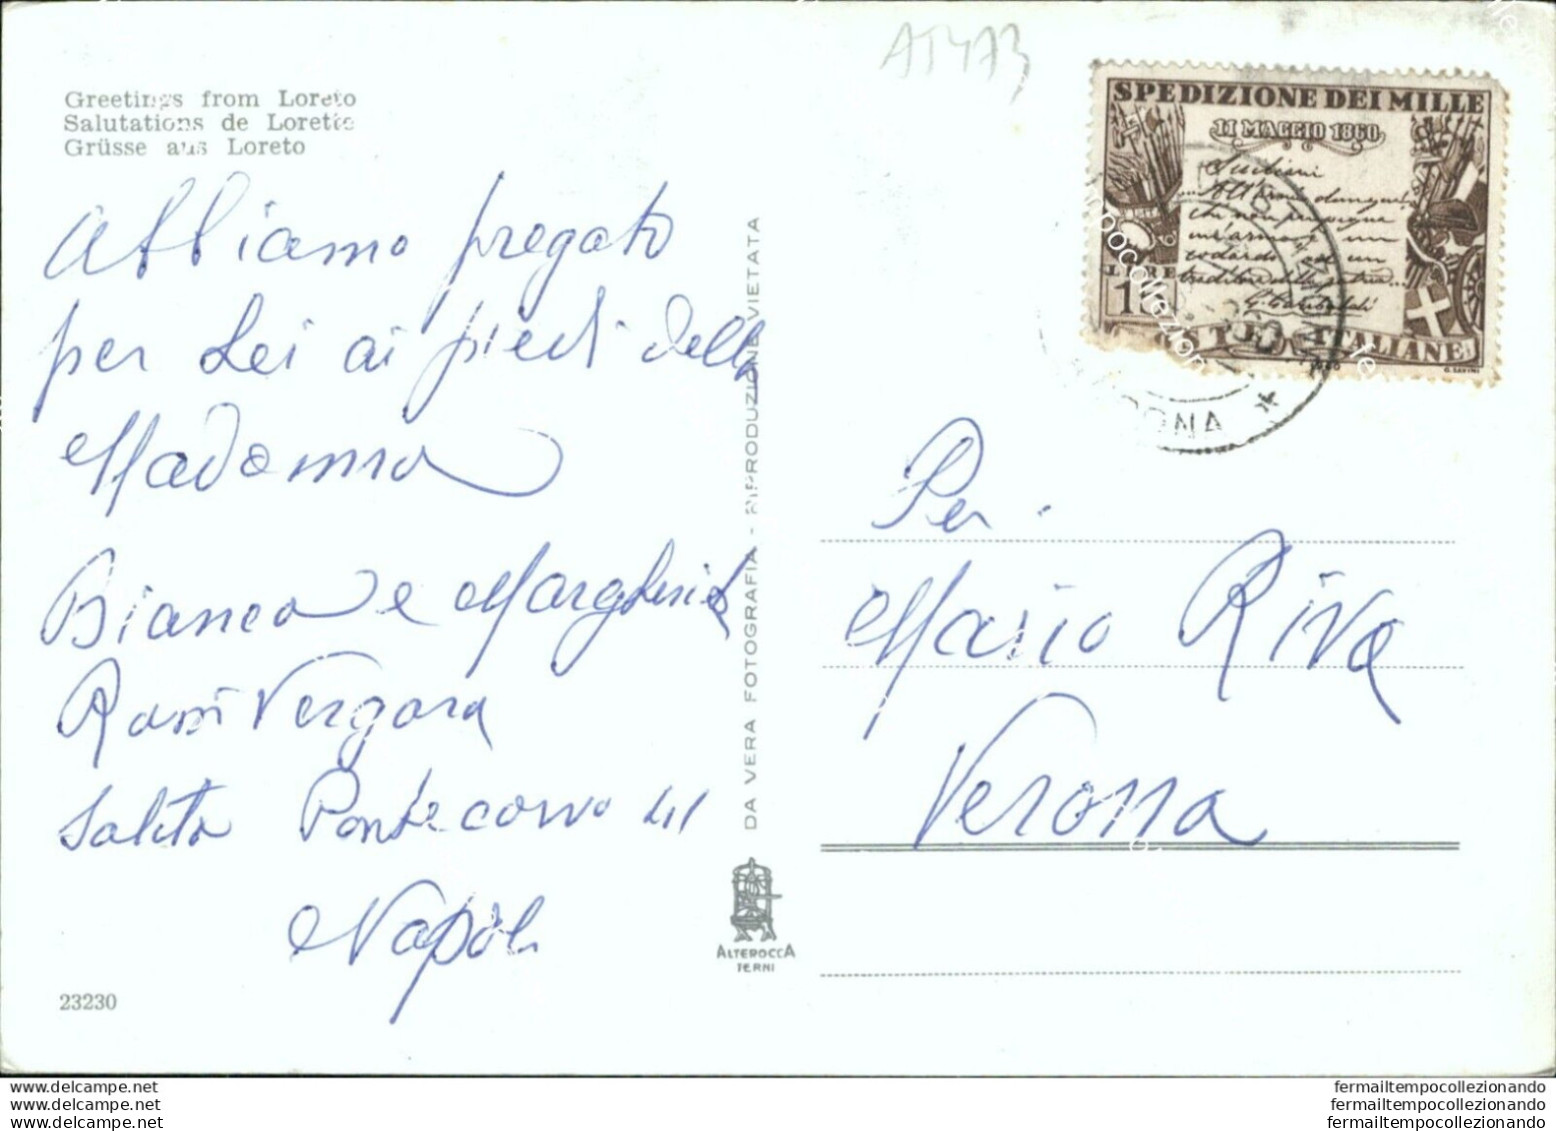 AT473
Greetings from Loreto
Salutations de Lorette
Grüsse aus Loreto
SPEDIZIONE DEI MILLE
11 MAGGIO 1860
Siciliani
LIRE
POSTE ITALIANE
G. SAVINI
Abbiamo pregato
per Lei ai piedi della
Madonna
Bianca e Margherita
Vergara
Salita Pontecorvo 41
Napoli
DA VERA FOTOGRAFIA - RIPRODUZIONE VIETATA
Per
Mario Riva
Verona
ALTEROCCA
TERNI
23230
www.delcampe.net
www.delcampe.net
www.delcampe.net
fermailtempocollezionando
fermailtempocollezionando
fermailtempocollezionando